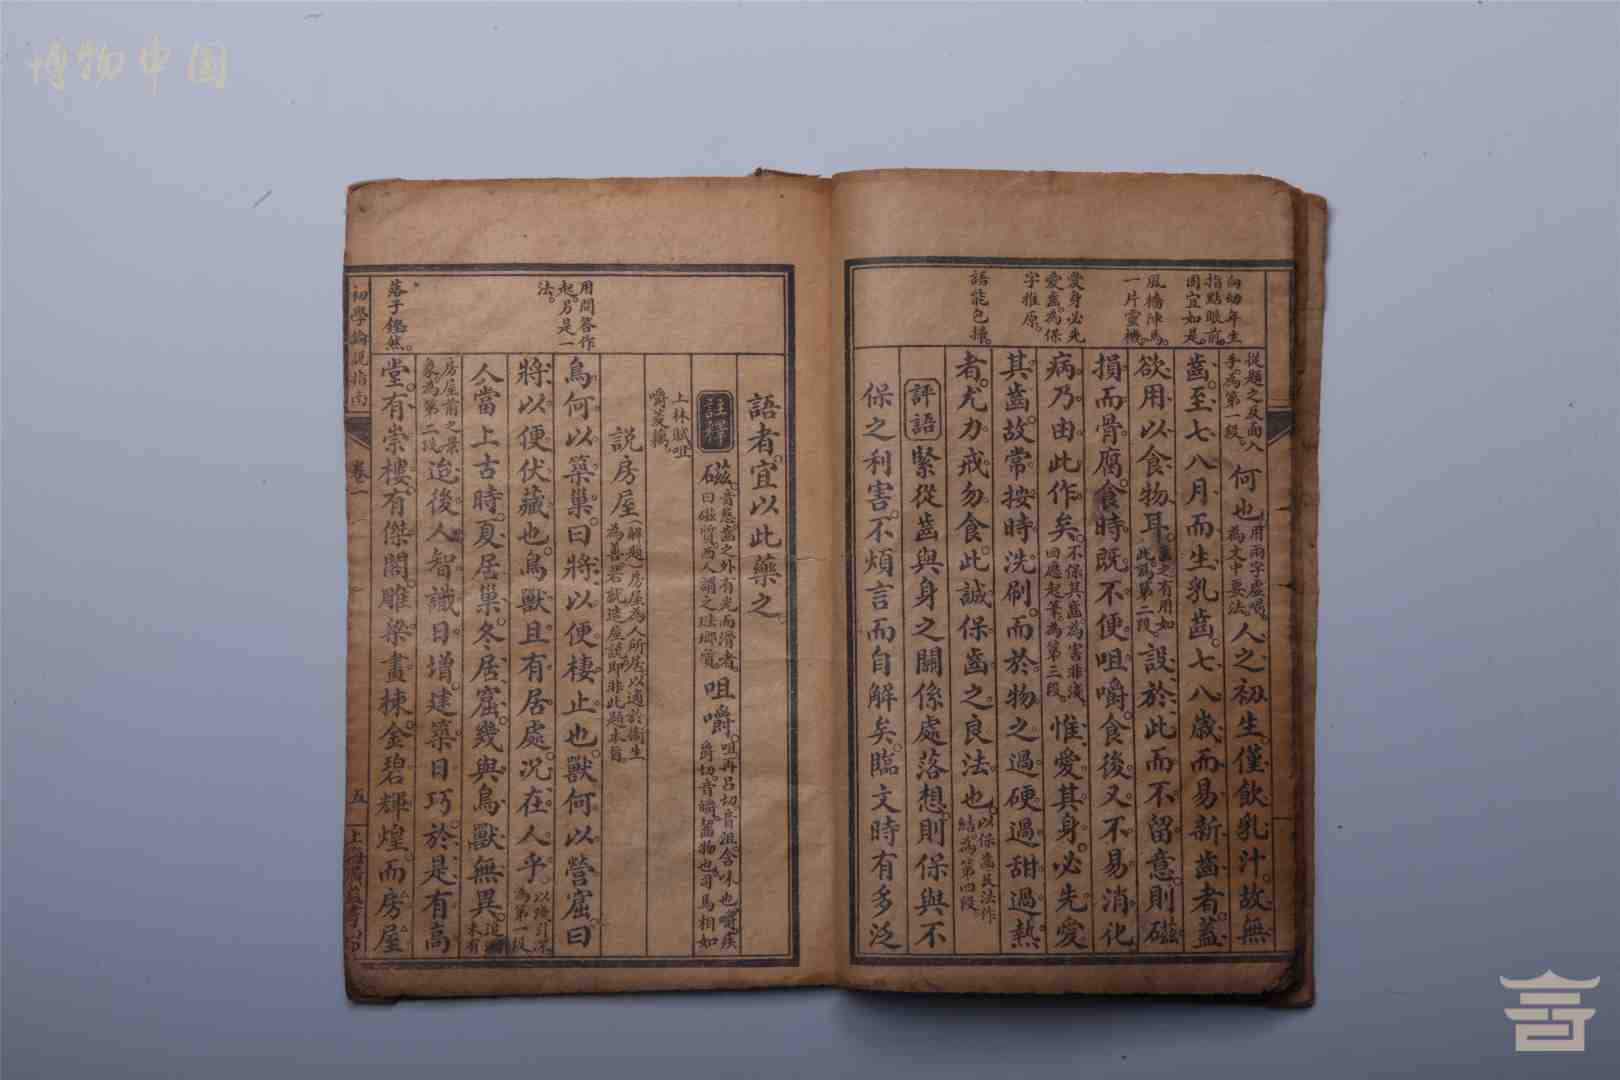 博物中国
向幼年生
指點眼前
固宜如是。
風檣陣馬。
一片靈機。
愛身必先
愛齒。為保
字推原。
語能包掃。
從題之反面入
手。為第一段。
何也用兩字虛喝。
為文中要法。
人之初生。僅飲乳汁。故無
齒。至七八月而生乳齒。七八歲而易新齒者。蓋
欲用以食物耳。
齒之有用如
此。為第二段。
設於此而不留意。則磁
損而骨腐。食時既不便咀嚼。食後又不易消化
病乃由此作矣。
不保其齒。為害非淺。
回應起筆。為第三段。
惟愛其身。必先愛
其齒。故常按時洗刷。而於物之過硬過甜過熱
者。尤力戒勿食。此誠保齒之良法也。
以保齒良法作
結。為第四段。
評語
緊從齒與身之關係處落想。則保與不
保之利害。不煩言而自解矣。臨文時有多泛
語者。宜以此藥之。
註釋
磁
音慈。齒之外有光而滑者。
曰磁質。西人謂之琺瑯質。
咀嚼
咀再呂切。音沮。含味也。嚼疾
爵切。音嚼。齧物也。司馬相如
上林賦。咀
嚼菱藕。
說房屋
(解題)房屋為人所居。以適於衛生
為善。若就造屋說。即非此題本旨。
用問答作
起。另是一
法。
鳥何以築巢。曰將以便棲止也。獸何以營窟。曰
將以便伏藏也。鳥獸且有居處。況在人乎。
以淺引深
為第一段
人當上古時。夏居巢。冬居窟。幾與鳥獸無異。
未有
房屋前之景
象。為第二段
迨後人智識日增。建築日巧。於是有高
落子鏗然。
堂。有崇樓。有傑閣。雕梁畫棟。金碧輝煌。而房屋
初學論說指南
卷一
五
上海廣益書局印